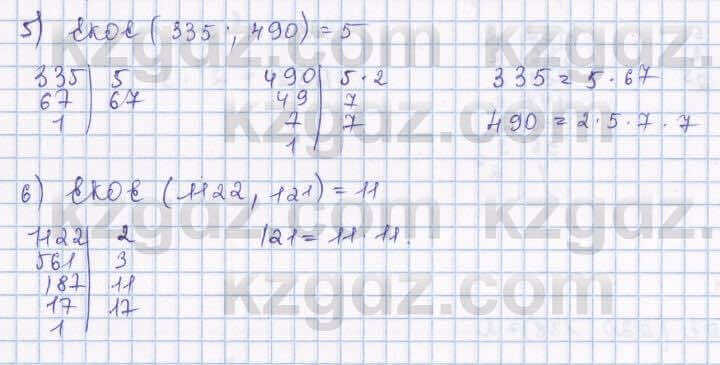 5) ЕКОЕ (335; 490) = 5
335 | 5 490 | 5·2 335 = 5·67
67 | 67 49 | 7
1 7 | 7 490 = 2·5·7·7
1
6) ЕКОЕ (1122, 121) = 11
1122 | 2 121 = 11·11.
561 | 3
187 | 11
17 | 17
1
kzgdz.com